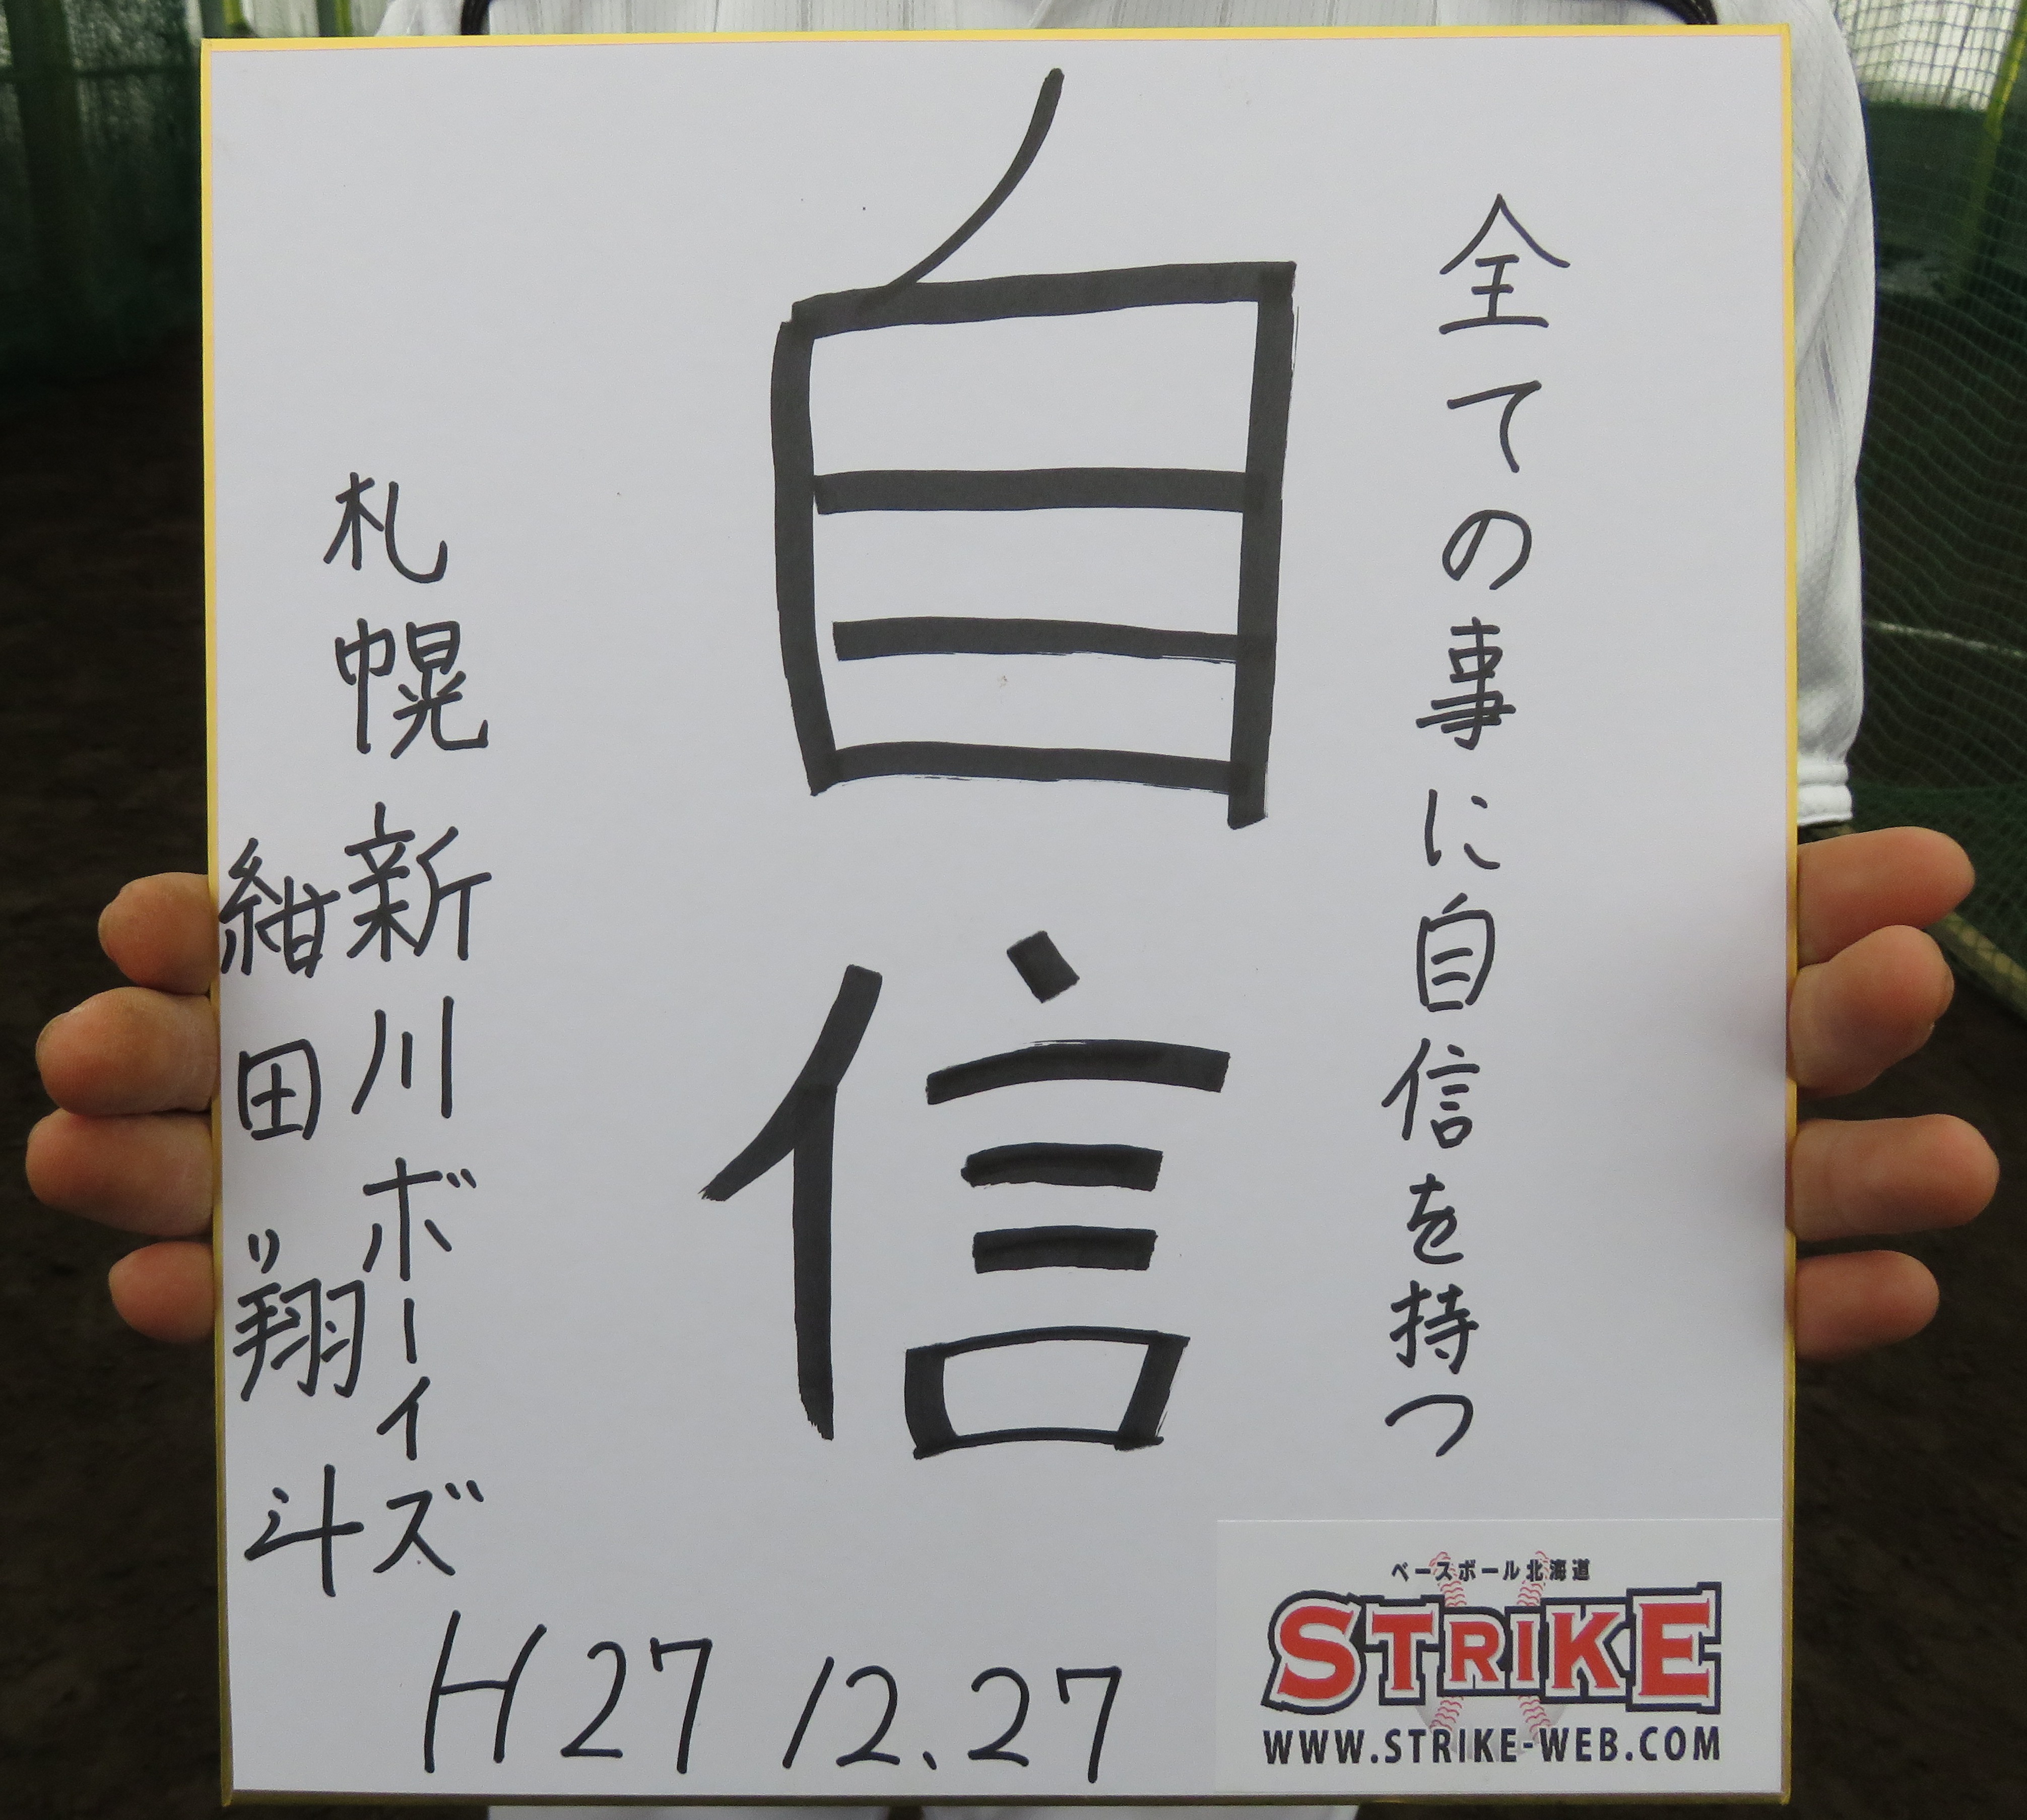 全ての事に自信を持つ
自信
札幌新川ボーイズ
紺田 翔斗
H27 12.27
ベースボール北海道
STRIKE
WWW.STRIKE-WEB.COM